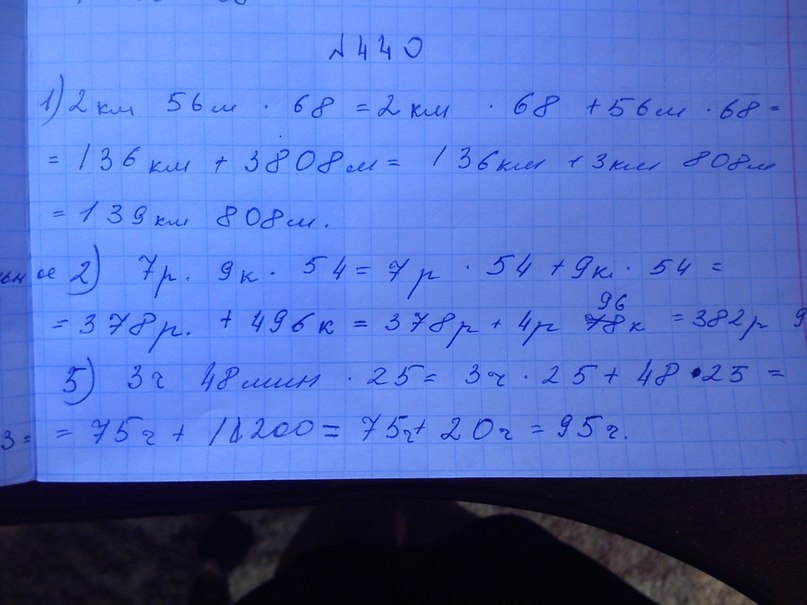 №440
1) 2 км 56 м · 68 = 2 км · 68 + 56 м · 68 =
= 136 км + 3808 м = 136 км + 3 км 808 м
= 139 км 808 м.
2) 7 р. 9 к · 54 = 7 р · 54 + 9 к · 54 =
96
= 378 р. + 496 к = 378 р + 4 р 78 к = 382 р 9
5) 3 ч 48 мин · 25 = 3 ч · 25 + 48 · 25 =
3 = = 75 ч + 1200 = 75 ч + 20 ч = 95 ч.